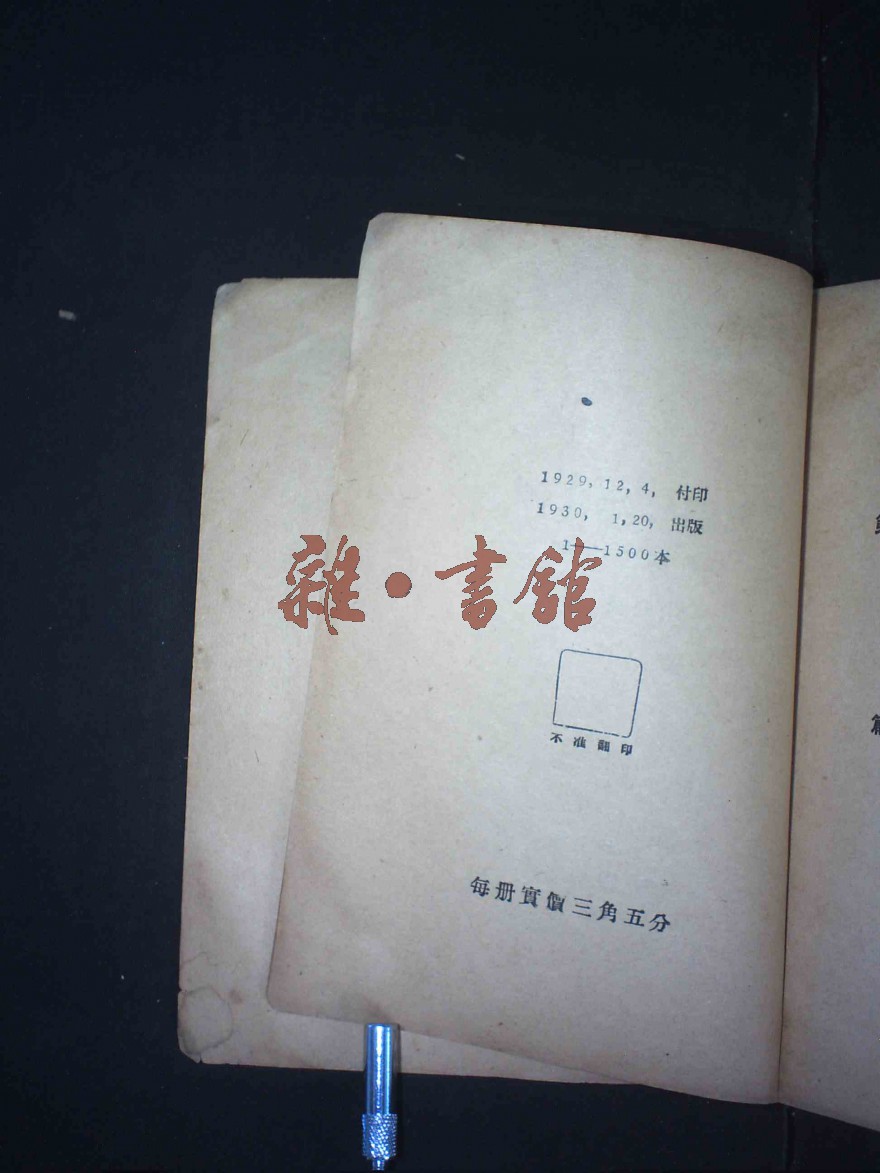 1929，12，4， 付印
1930， 1，20， 出版
1——1500本
雜·書館
不准翻印
每册實價三角五分